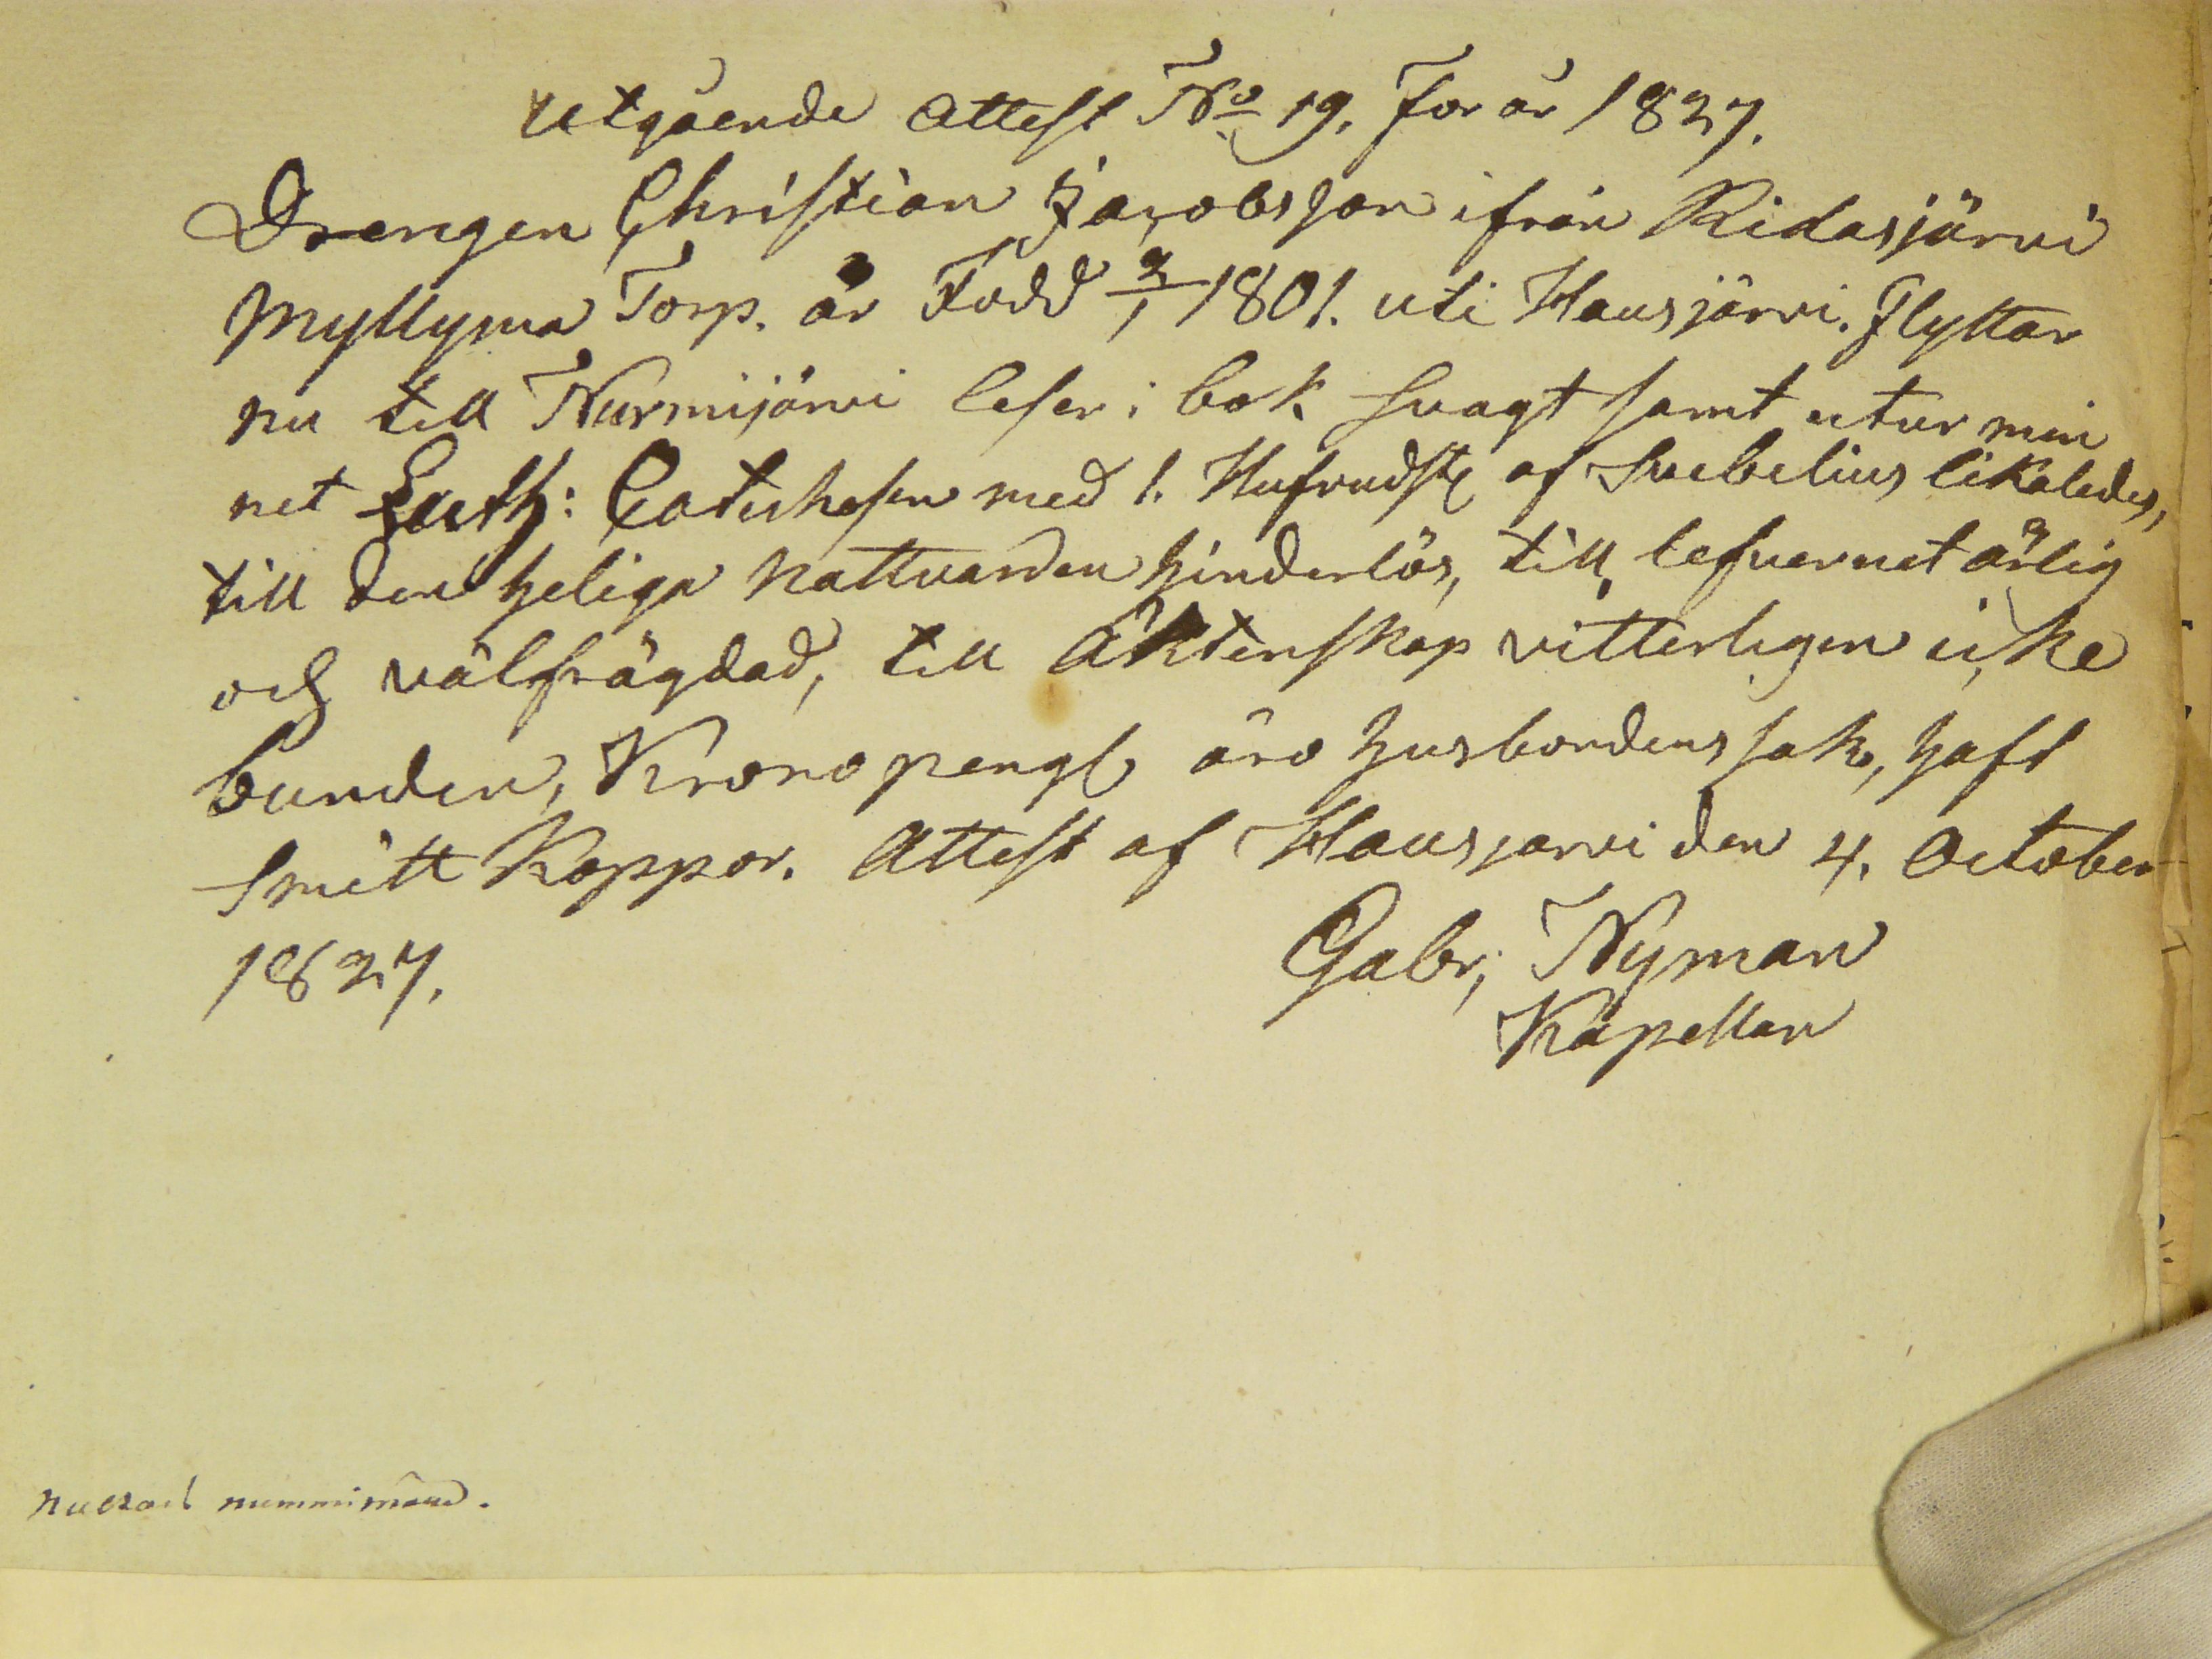 Utgående Attest No 19. för år 1827.
Drengen Christian Jacobsson ifrån Ridasjärvi
Myllyma Torp. är Född 2/1 1801. uti Hausjärvi. Flyttar
nu till Nurmijärvi läser i bok svagt samt utur min
net Luth: Catechesen med 1. Hufvudst. af Svebelius likaledes,
till den heliga nattvarden hinderlös, till lefvernet ärlig
och välfrägdad, till Äktenskap vitterligen icke
bunden, Krono peng. äro husbondens sak, haft
Smitt Koppor. Attest af Hausjarvi den 4. October
1827.
Gabr; Nyman
Kapellan
nummi